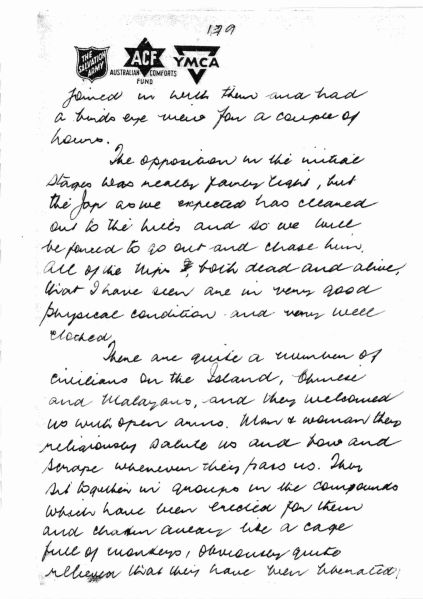 129
THE SALVATION ARMY
ACF
AUSTRALIAN COMFORTS FUND
YMCA
joined in with them and had
a birds eye view for a couple of
hours.
The opposition in the initial
stages was really fairly light, but
the Jap as we expected has cleared
out to the hills and so we will
be forced to go out and chase him.
All of the Nips, both dead and alive,
that I have seen are in very good
physical condition and very well
clothed.
There are quite a number of
civilians on the Island, Chinese
and Malayans, and they welcomed
us with open arms. Man & woman they
religiously salute us and bow and
scrape whenever they pass us. They
sit together in groups in the compounds
which have been erected for them
and chatter away like a cage
full of monkeys, obviously quite
relieved that they have been liberated;